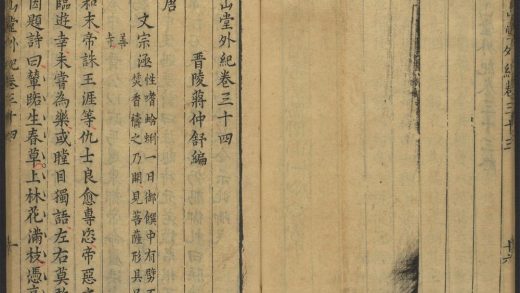 堂外紀卷三十三
十六
山堂外紀卷三十四
晉陵蔣仲舒編
唐
文宗涵
性嗜蛤蜊一日御饌中有劈不
焚香禱之乃開見菩薩形具
善寺
和末帝誅王涯等仇士良愈專恣帝惡
臨遊幸未嘗為樂或瞠目獨語左右莫敢
因題詩曰輦路生春草上林花滿枝憑高